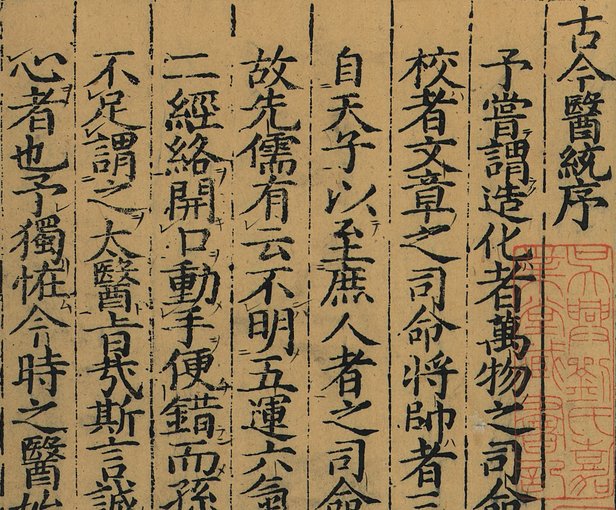 古今醫統序
予嘗謂造化者萬物之司命
校者文章之司命將帥者
自天子以至庶人者之司命
故先儒有云不明五運六氣
二經絡開口動手便錯而孫
不足謂之大醫旨哉斯言誠
心者也予獨恠今時之醫
吳興劉氏嘉
業堂藏書記